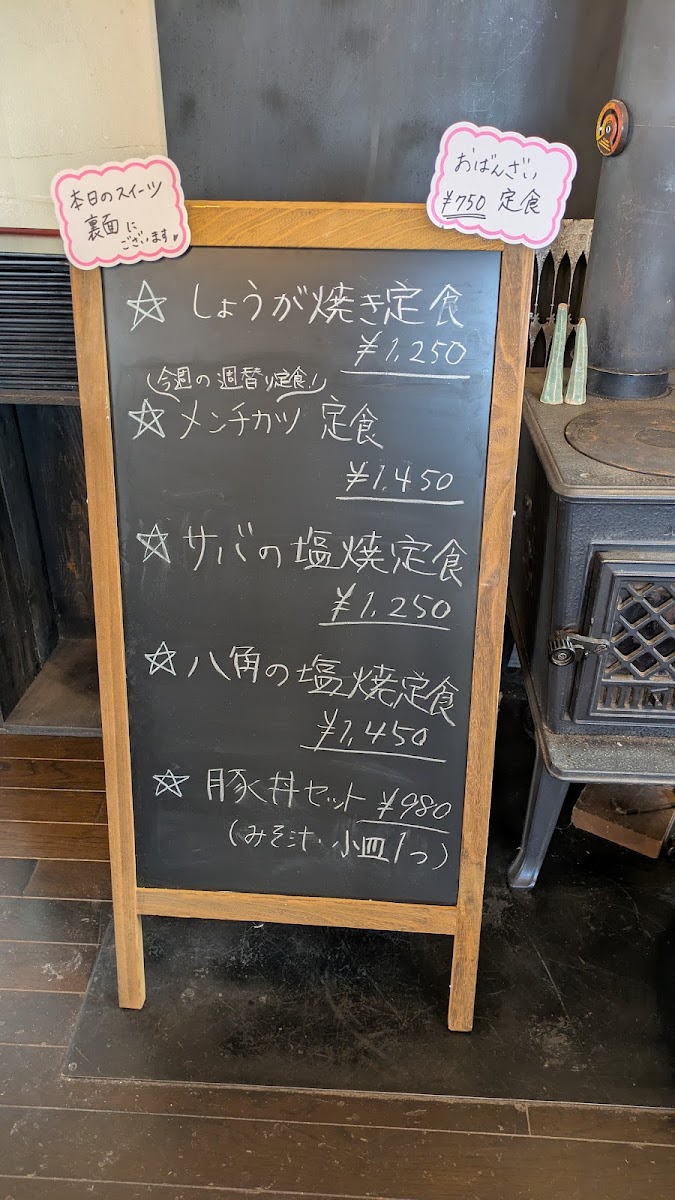 本日のスイーツ
裏面に
ございます♥
おばんざい
¥750 定食
☆ しょうが焼き定食
¥1,250
(今週の週替り定食!)
☆ メンチカツ 定食
¥1,450
☆ サバの塩焼定食
¥1,250
☆ 八角の塩焼定食
¥1,450
☆ 豚丼セット ¥980
(みそ汁・小皿1つ)